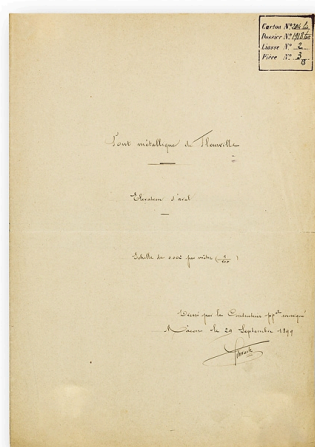 Carton N° 
Dossier N° 
Liasse N° 2
Pièce N° 3
Pont métallique de Fleurville
Elévation d'aval
Echelle de 0.005 par mètre
Dressé par le Conducteur soussigné
Macon le 29 Septembre 1899